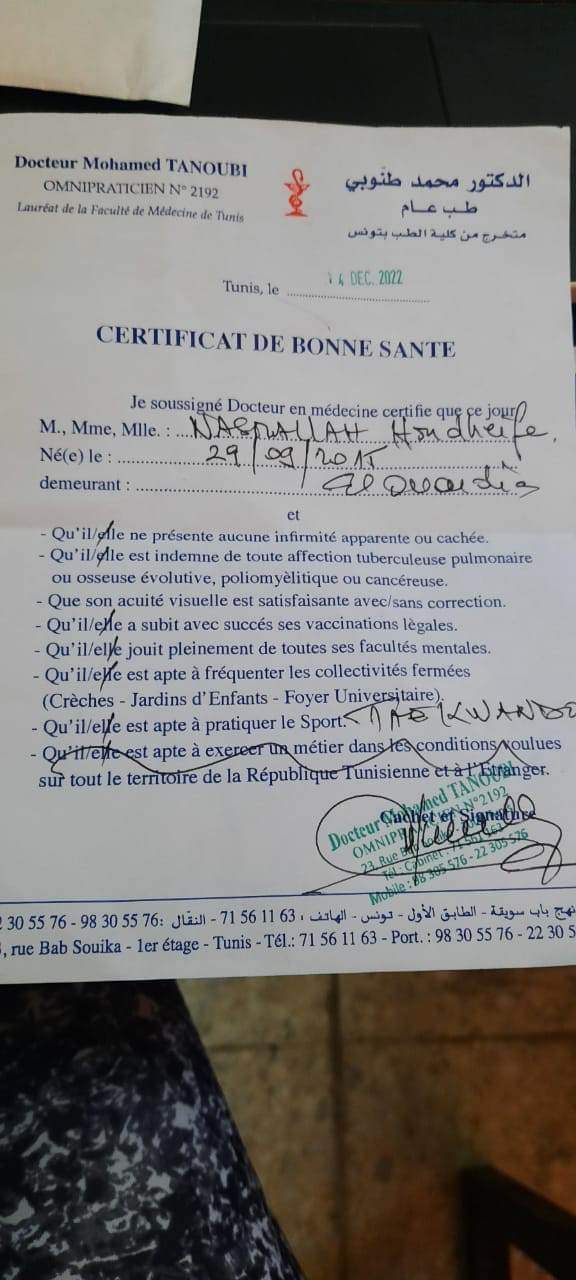 Docteur Mohamed TANOUBI
OMNIPRATICIEN N° 2192
Lauréat de la Faculté de Médecine de Tunis
الدكتور محمد طنّوبي
طب عـام
متخرج من كلية الطب بتونس
Tunis, le 14 DEC. 2022
CERTIFICAT DE BONNE SANTE
Je soussigné Docteur en médecine certifie que ce jour
M., Mme, Mlle. : NASRALLAH Houdheife
Né(e) le : 29/09/2015
demeurant : El Ouardia
et
- Qu'il/elle ne présente aucune infirmité apparente ou cachée.
- Qu'il/elle est indemne de toute affection tuberculeuse pulmonaire
ou osseuse évolutive, poliomyèlitique ou cancéreuse.
- Que son acuité visuelle est satisfaisante avec/sans correction.
- Qu'il/elle a subit avec succés ses vaccinations lègales.
- Qu'il/elle jouit pleinement de toutes ses facultés mentales.
- Qu'il/elle est apte à fréquenter les collectivités fermées
(Crèches - Jardins d'Enfants - Foyer Universitaire).
- Qu'il/elle est apte à pratiquer le Sport. TAEKWANDO
- Qu'il/elle est apte à exercer un métier dans les conditions voulues
sur tout le territoire de la République Tunisienne et à l'Etranger.
Cachet et Signature
Docteur Mohamed TANOUBI
OMNIPRATICIEN N°2192
23, Rue Bab
Tél : Cabinet : 71 561 163
Mobile : 98 305 576 - 22 305 576
نهج باب سويقة - الطابق الأول - تـونس - الهاتف : 63 11 56 71 - النقّال : 76 55 30 98 - 76 55 30 2
, rue Bab Souika - 1er étage - Tunis - Tél.: 71 56 11 63 - Port. : 98 30 55 76 - 22 30 5